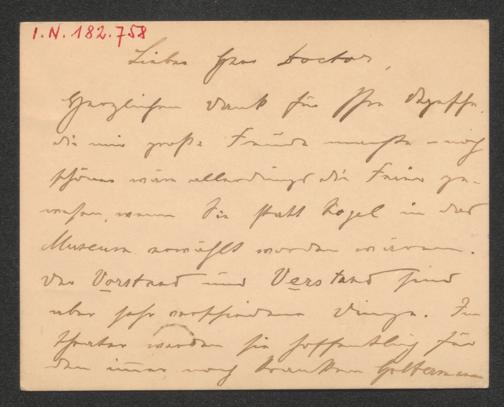 I.N. 182.758
Lieber Herr Doctor,
Herzlichen Dank für Ihre Depesche,
die mir große Freude machte – noch
schöner wäre allerdings die Feier ge-
wesen, wenn Sie statt Kogel in das
Museum gewählt worden wären.
Vorstand und Verstand sind
aber sehr verschiedene Dinge. Im
werden Sie hoffentlich für
den immer noch kranken Goltermann